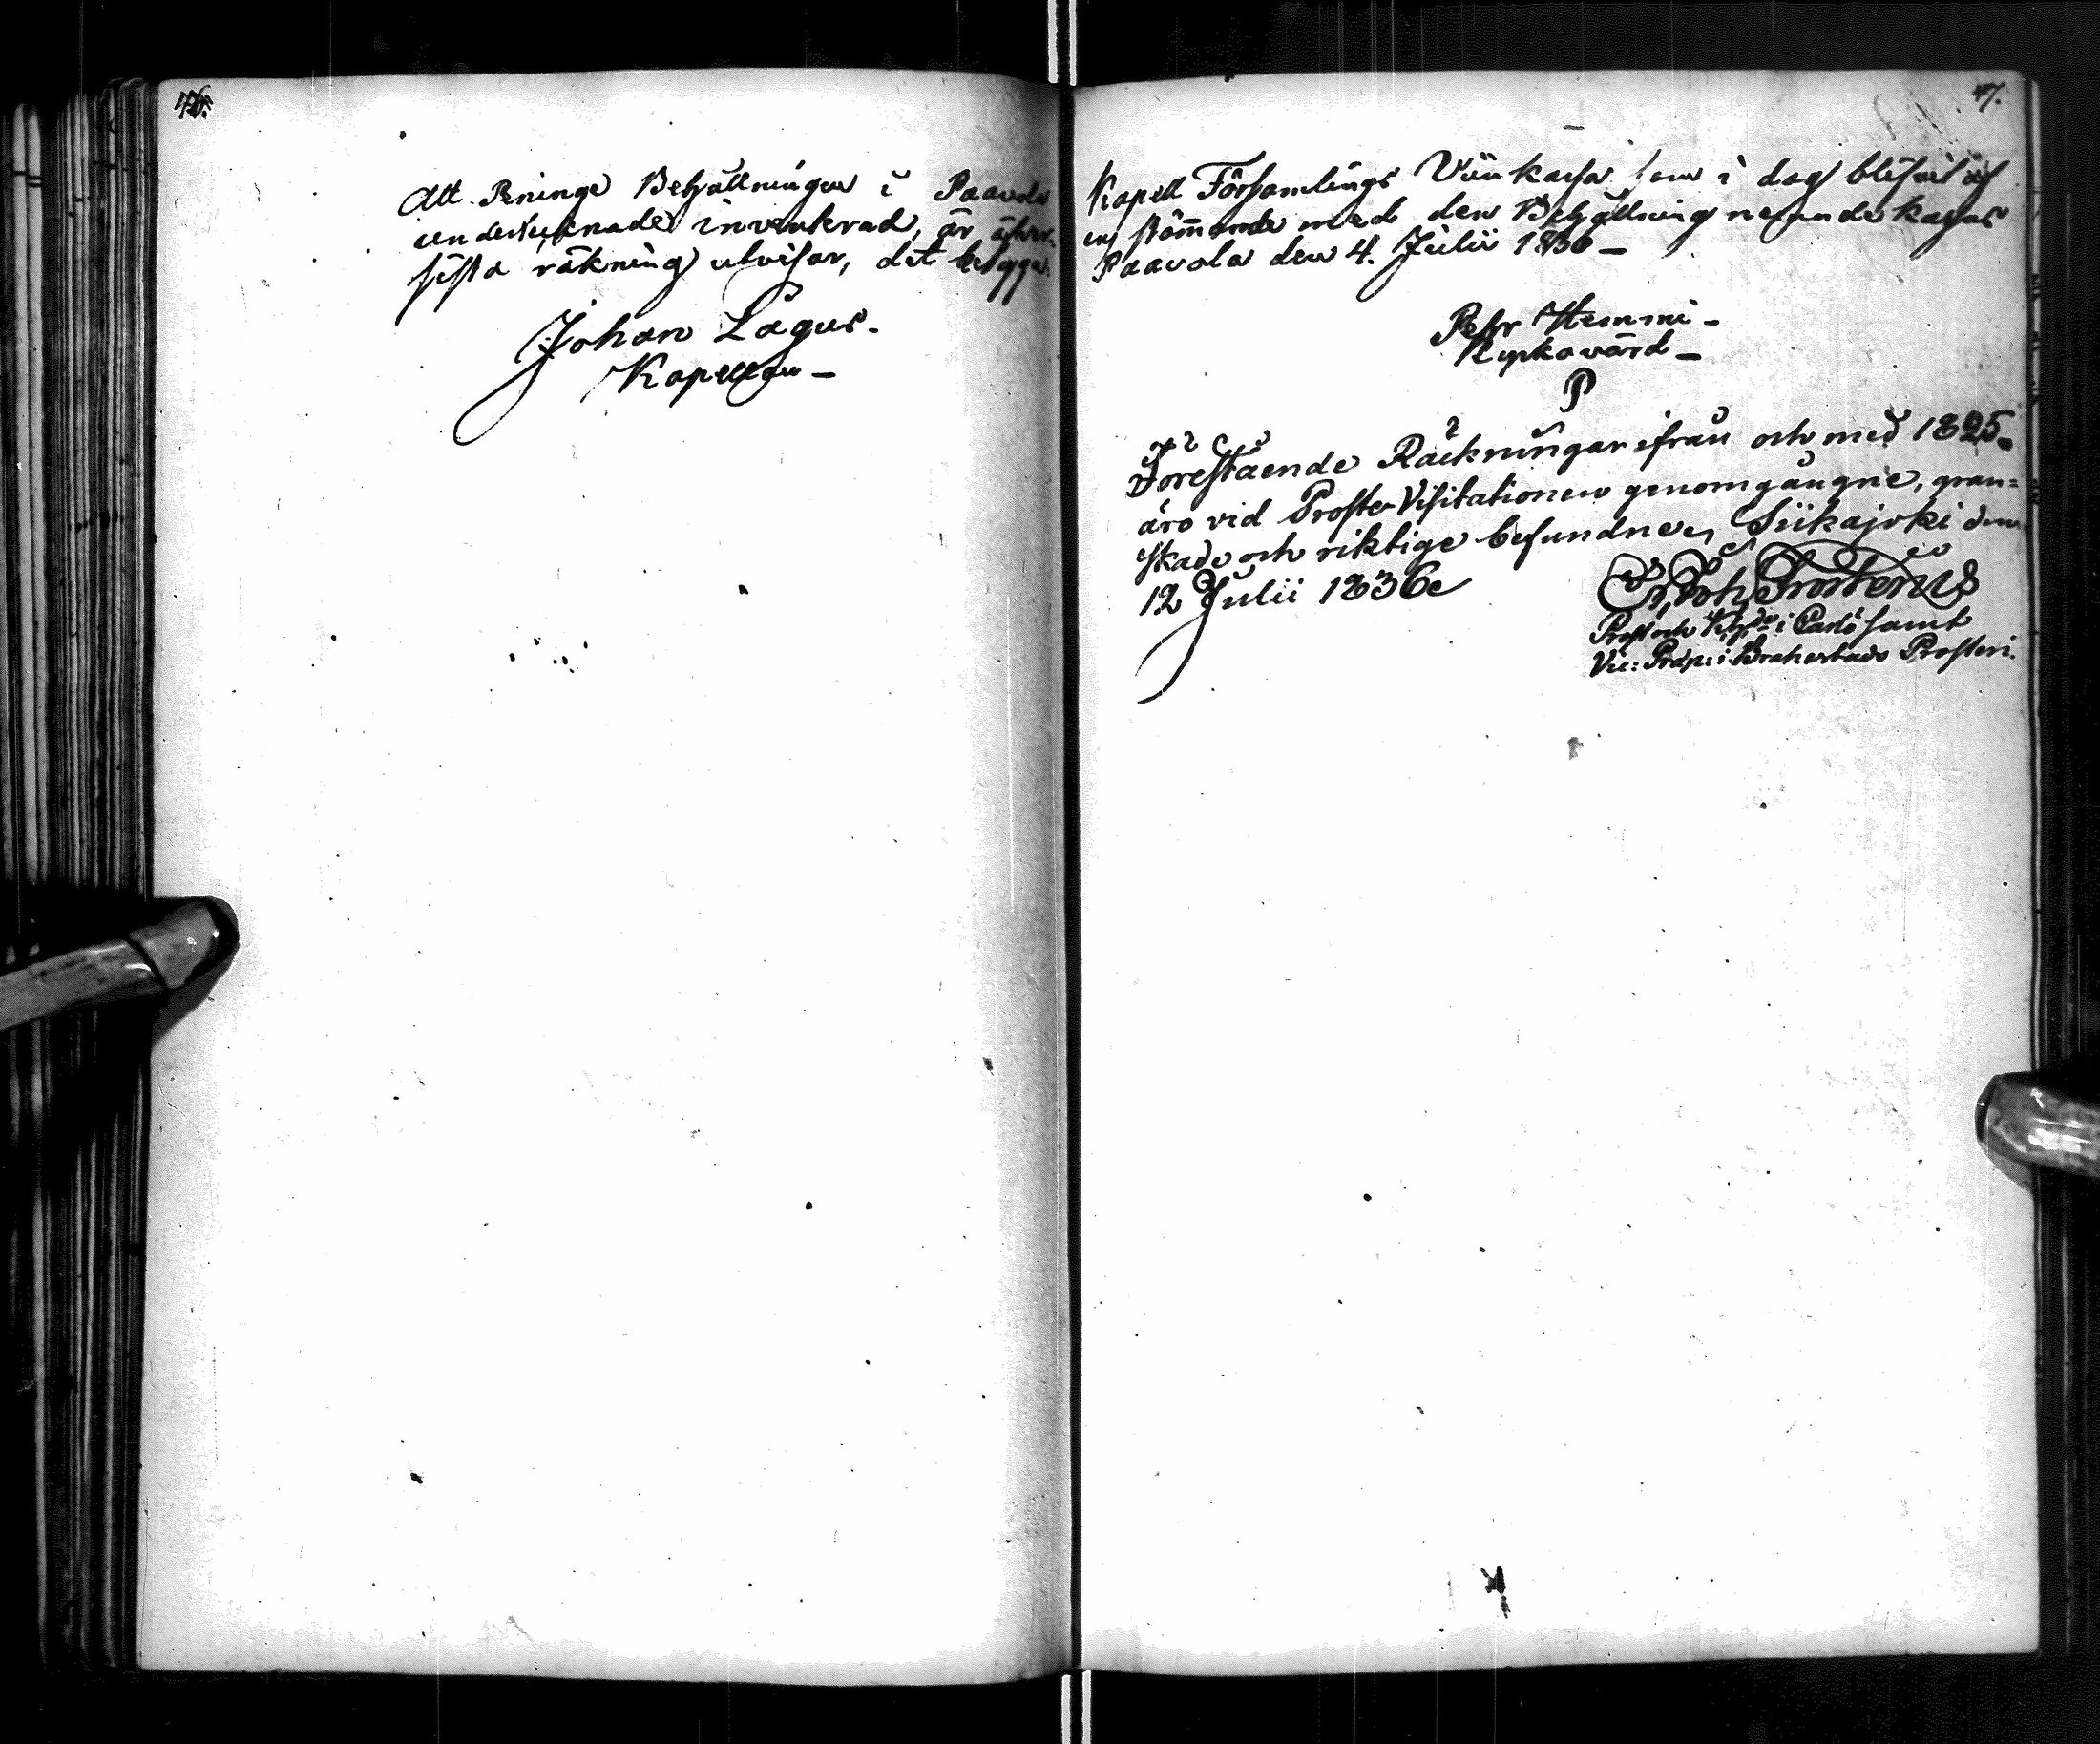 46.
Att Peninge Behållningen i Paavola
undertecknade inventerad, är öfver-
sista räkning utvisar, det betyga.
Johan Lagus.
Kapellan
47.
Kapell Församlings Viinkassa som i dag blifvit af
ens stämmande med den Behållning nefande kassas
Paavola den 4. Julii 1836
Pehr Hemmi
Kyrkovärd
P
Förestående Räckningar ifrån och med 1825
äro vid Proste-Visitationen genomgångne, gran-
skade och riktige befundne, Siikajoki den
12 Julii 1836
Joh. Frosterus
Prost och Khde i Carlö samt
Vic: Præp: i Brahestads Prosteri.